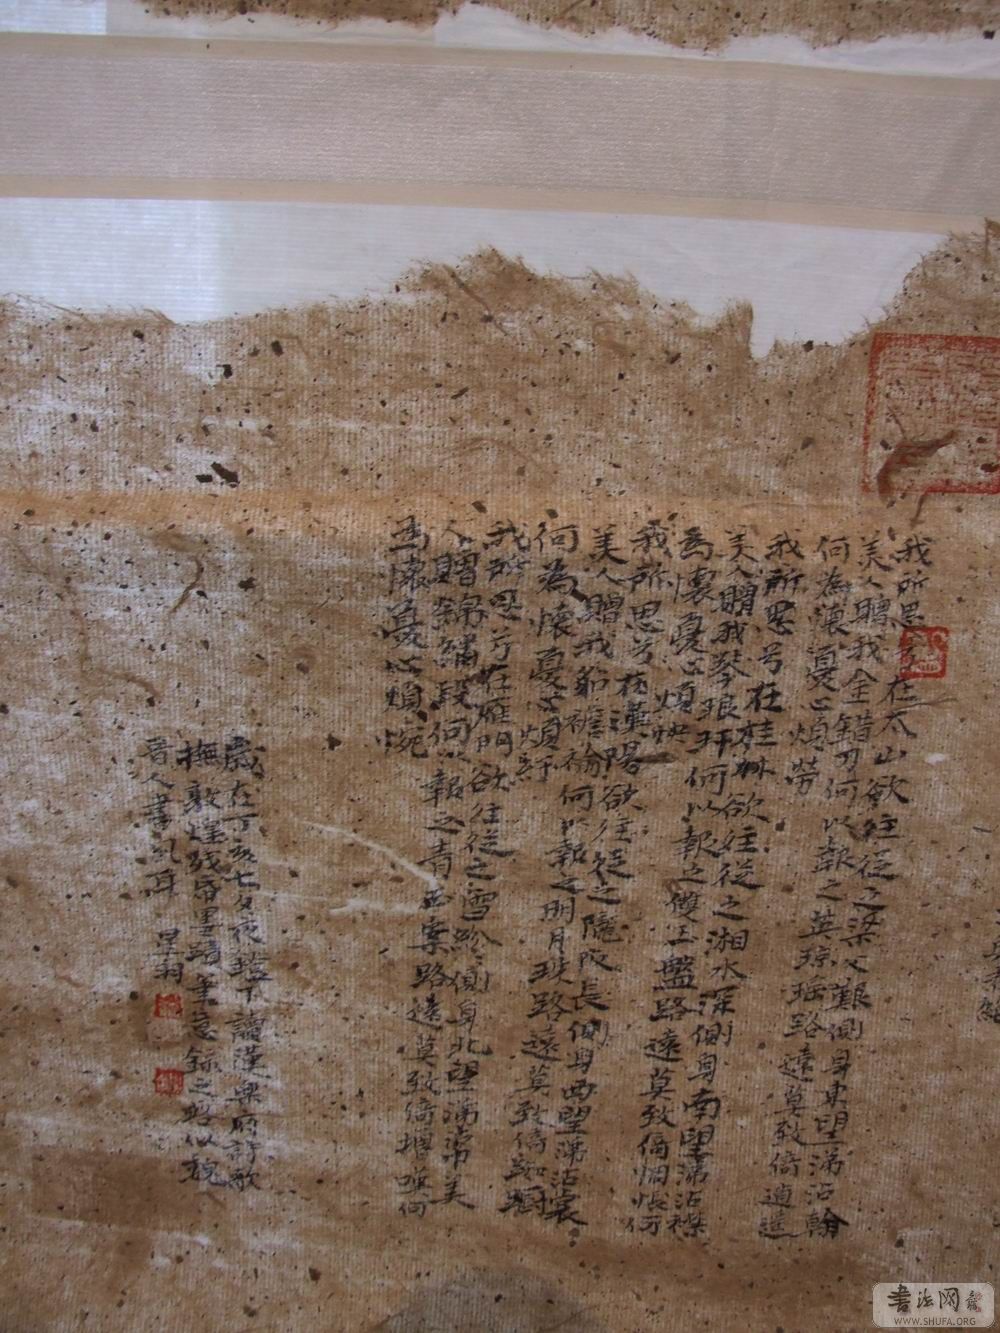 我所思兮在太山欲往從之梁父艱側身東望涕沾翰
美人贈我金錯刀何以報之英瓊瑤路遠莫致倚逍遙
何為懷憂心煩勞
我所思兮在桂林欲往從之湘水深側身南望涕沾襟
美人贈我琴琅玕何以報之雙玉盤路遠莫致倚惆悵何
為懷憂心煩怏
我所思兮在漢陽欲往從之隴阪長側身西望涕沾裳
美人贈我貂襜褕何以報之明月珠路遠莫致倚踟躕
何為懷憂心煩紆
我所思兮在雁門欲往從之雪紛紛側身北望涕美
人贈錦繡段何以報之青玉案路遠莫致倚增嘆何
為懷憂心煩惋
歲在丁亥七夕夜燈下讀漢樂府詩歌
撫敦煌殘帛墨蹟筆意錄之略似魏
晉人書風耳 星羽
書法网
WWW.SHUFA.ORG